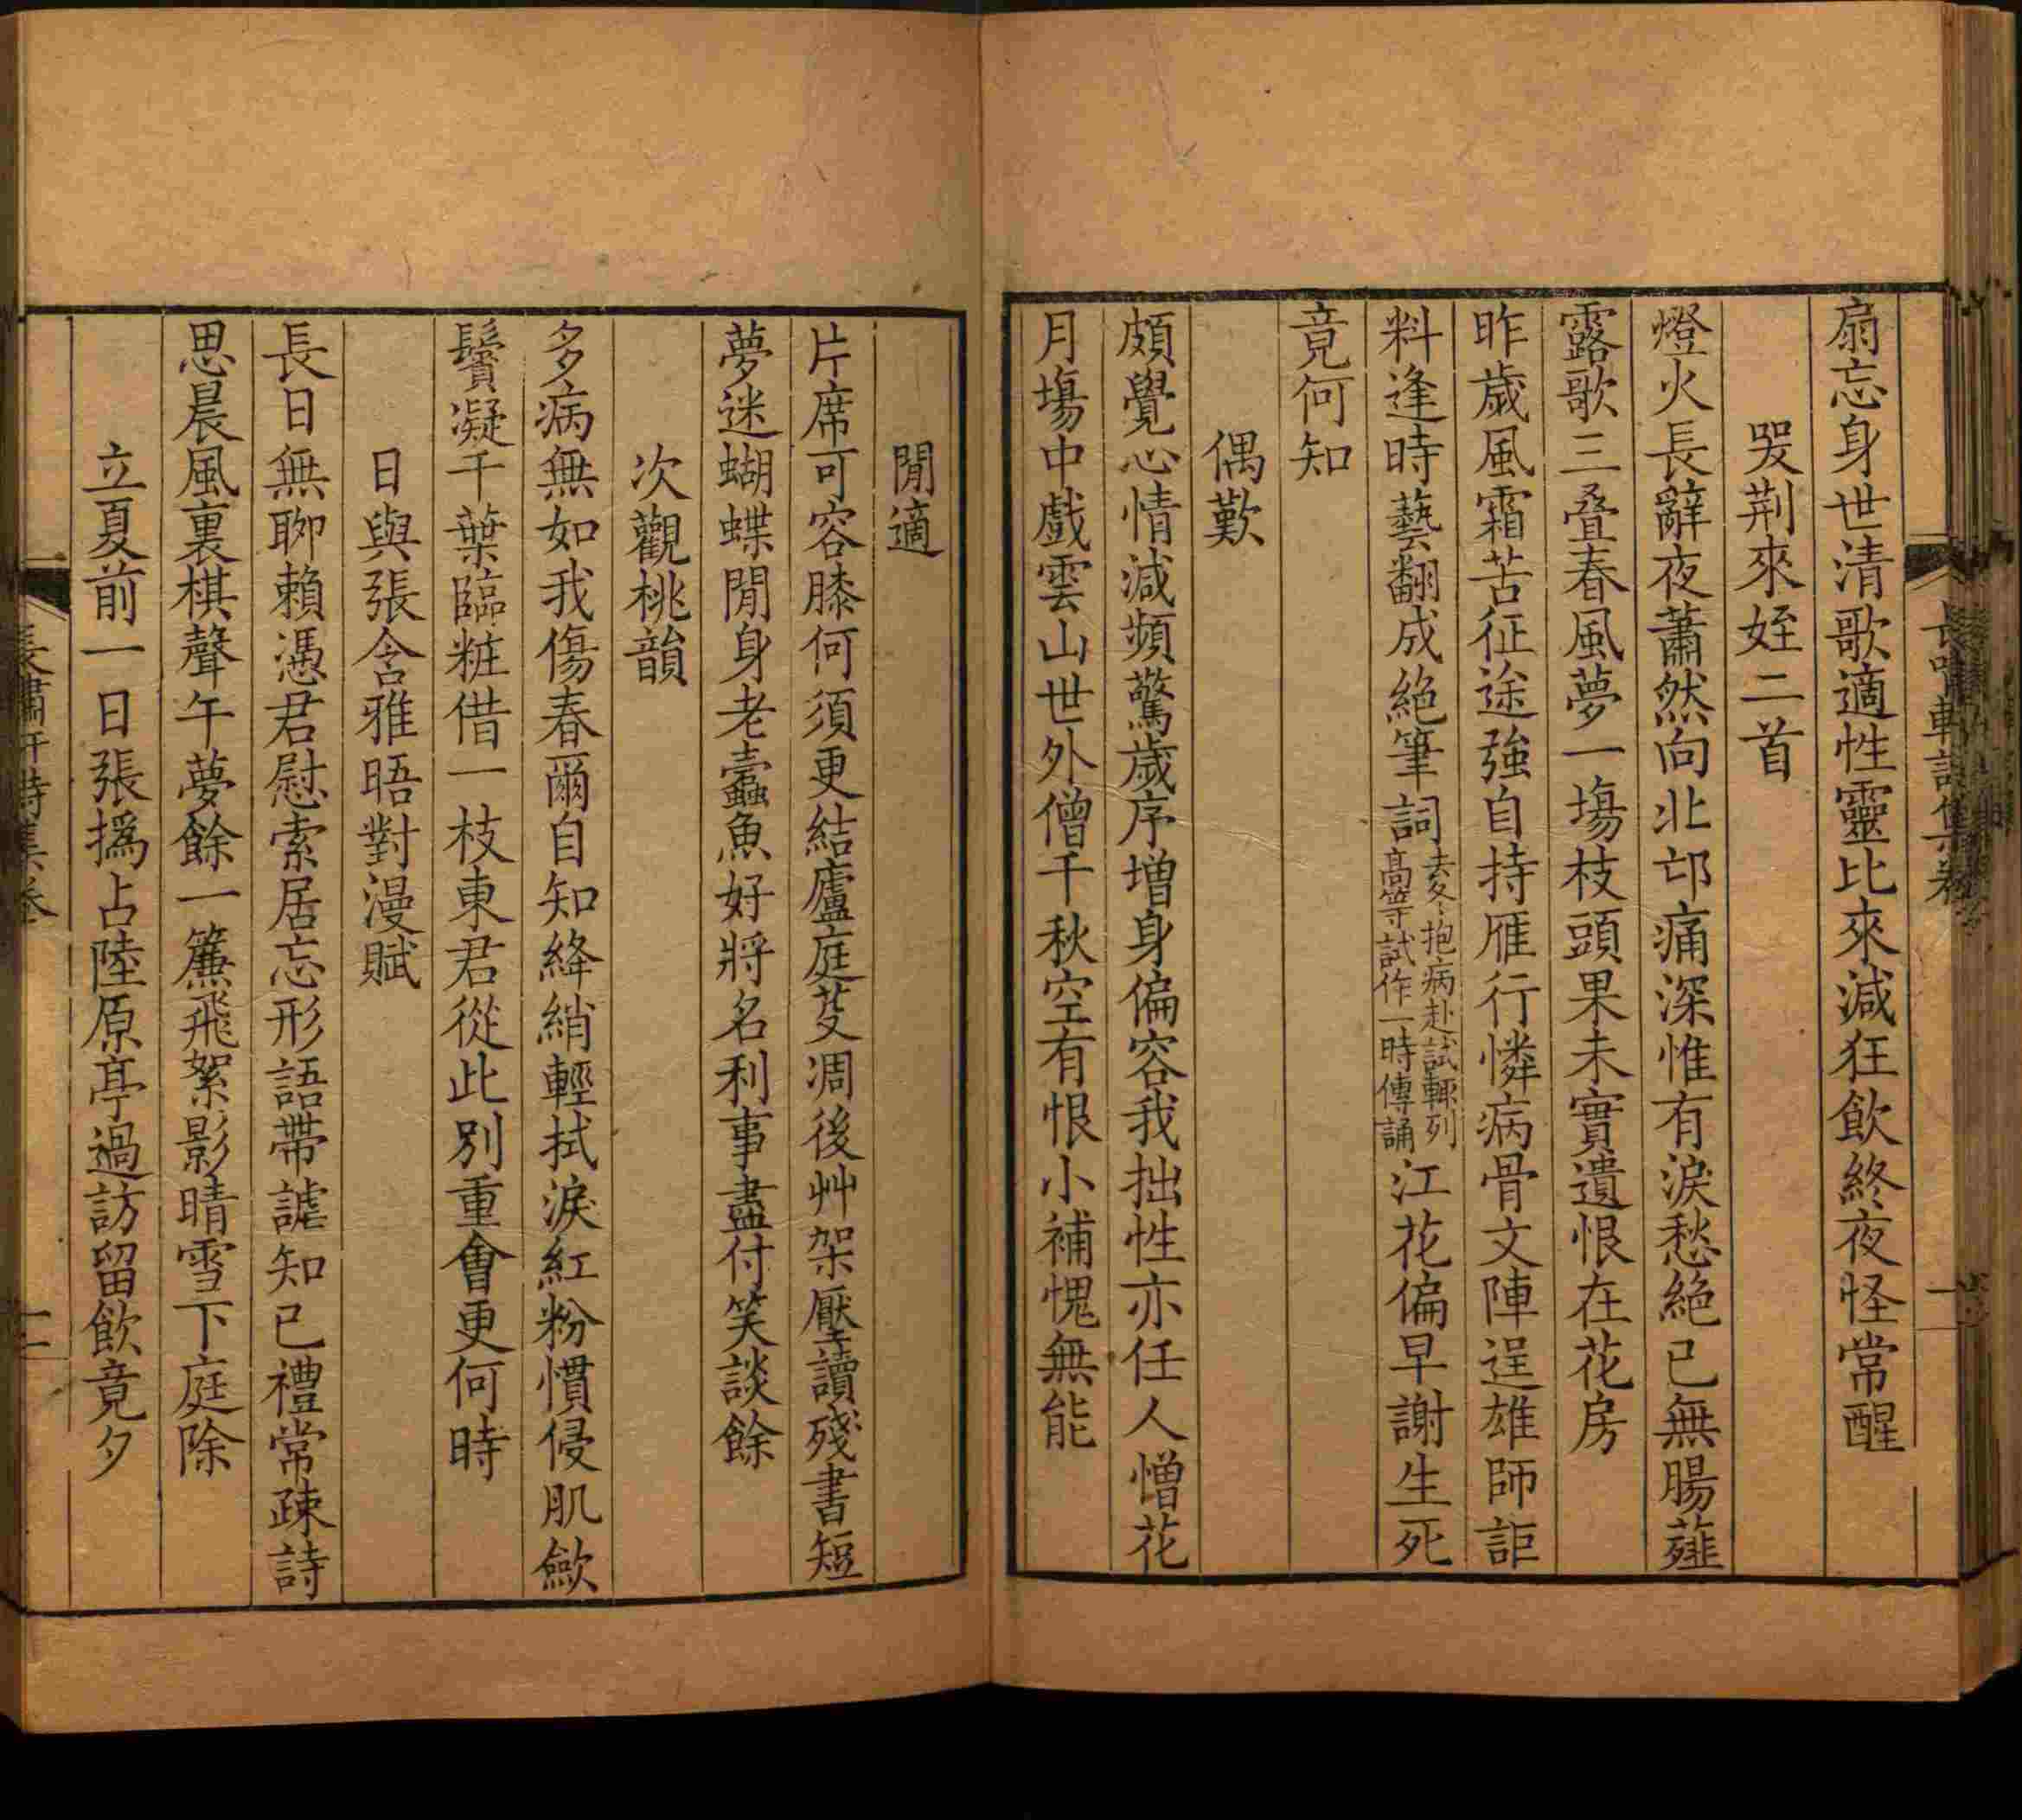 扇忘身世清歌適性靈比來減狂飲終夜怪常醒
哭荆來姪二首
燈火長辭夜蕭然向北邙痛深惟有淚愁絕已無腸薤
露歌三叠春風夢一場枝頭果未實遺恨在花房
昨歲風霜苦征途強自持雁行憐病骨文陣逞雄師詎
料逢時藝翻成絕筆詞去冬抱病赴試輒列高等試作一時傳誦江花偏早謝生死
竟何知
偶歎
頗覺心情減頻驚歲序增身偏容我拙性亦任人憎花
月塲中戲雲山世外僧千秋空有恨小補愧無能
閒適
片席可容膝何須更結廬庭芟凋後艸架壓讀殘書短
夢迷蝴蝶閒身老蠹魚好將名利事盡付笑談餘
次觀桃韻
多病無如我傷春爾自知絳綃輕拭淚紅粉慣侵肌歛
鬢凝千葉臨粧借一枝東君從此別重會更何時
日與張含雅晤對漫賦
長日無聊賴憑君慰索居忘形語帶謔知已禮常疎詩
思晨風裏棋聲午夢餘一簾飛絮影晴雪下庭除
立夏前一日張撝占陸原亭過訪留飲竟夕